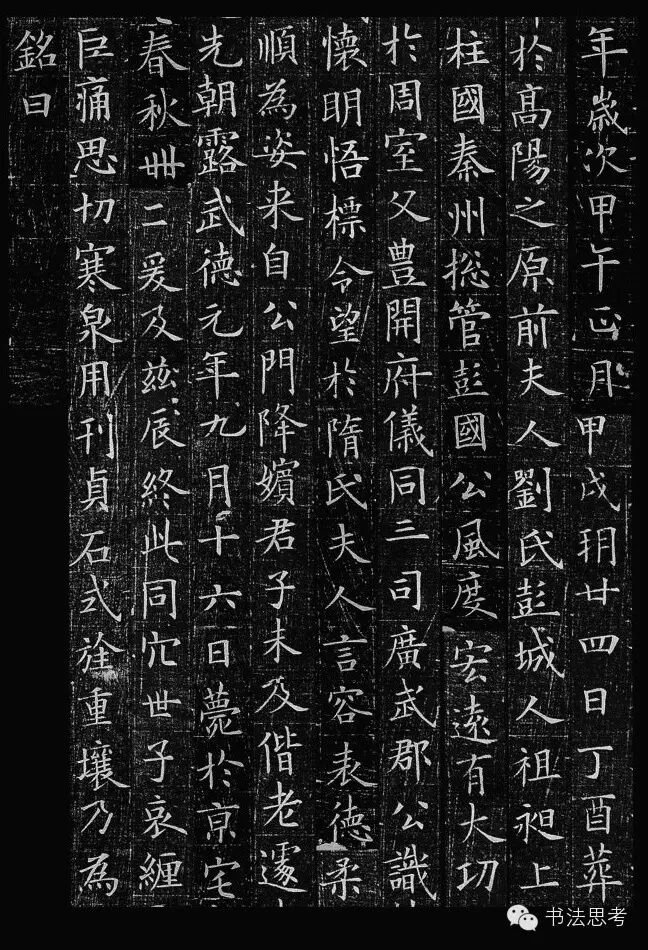 年歲次甲午正月甲戌朔廿四日丁酉葬
於高陽之原前夫人劉氏彭城人祖昶上
柱國秦州揔管彭國公風度宏遠有大功
於周室父豊開府儀同三司廣武郡公識
懷明悟標令望於隋氏夫人言容表德柔
順為姿来自公門降嬪君子未及偕老遽
先朝露武德元年九月十六日薨於京宅
春秋卌二爰及茲辰終此同穴世子哀纏
巨痛思切寒泉用刊貞石式旌重壤乃為
銘曰
书法思考